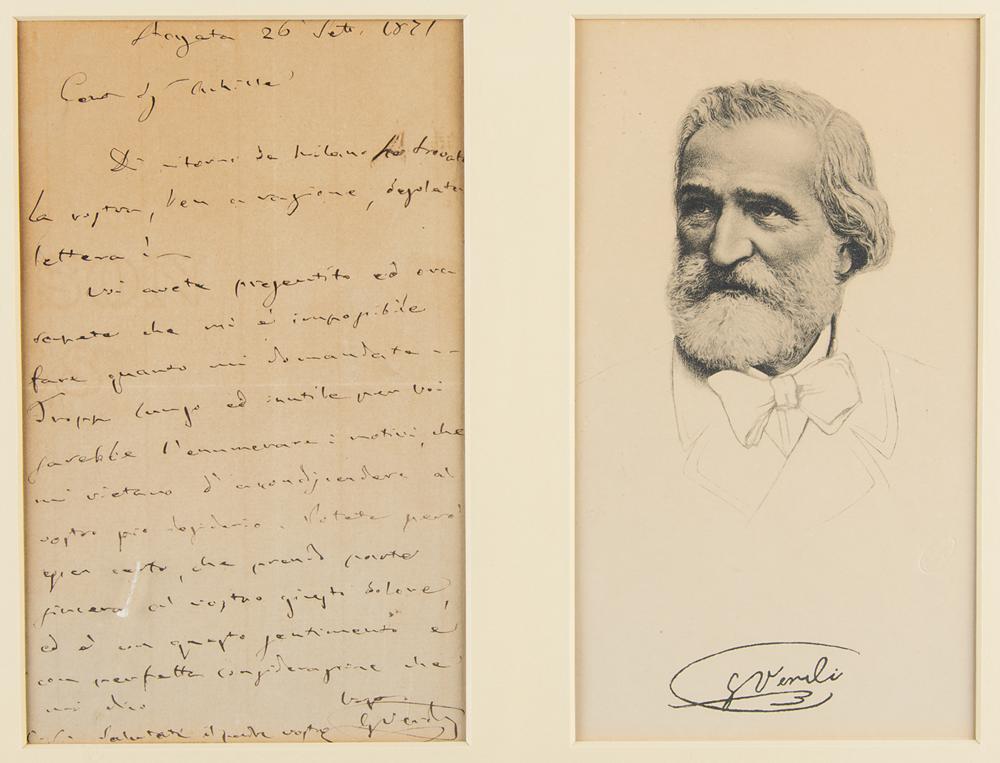 S.Agata 26 Sett. 1871
Caro Sigr Achille
Di ritorno da Milano ho trovato
la vostra, ben a ragione, desolata
lettera!—
Voi avete presentito ed ora
sapete che mi è impossibile
fare quando mi domandate --
Troppo lungo ed inutile per voi
sarebbe l'enumerare i motivi, che
mi vietano d'accondiscendere al
vostro pio desiderio. Potete però
esser certo, che prendo parte
sincera al vostro giusto dolore,
ed è con questo sentimento e
con perfetta considerazione che
mi dico
GVerdi
Salutate il padre vostro
GVerdi